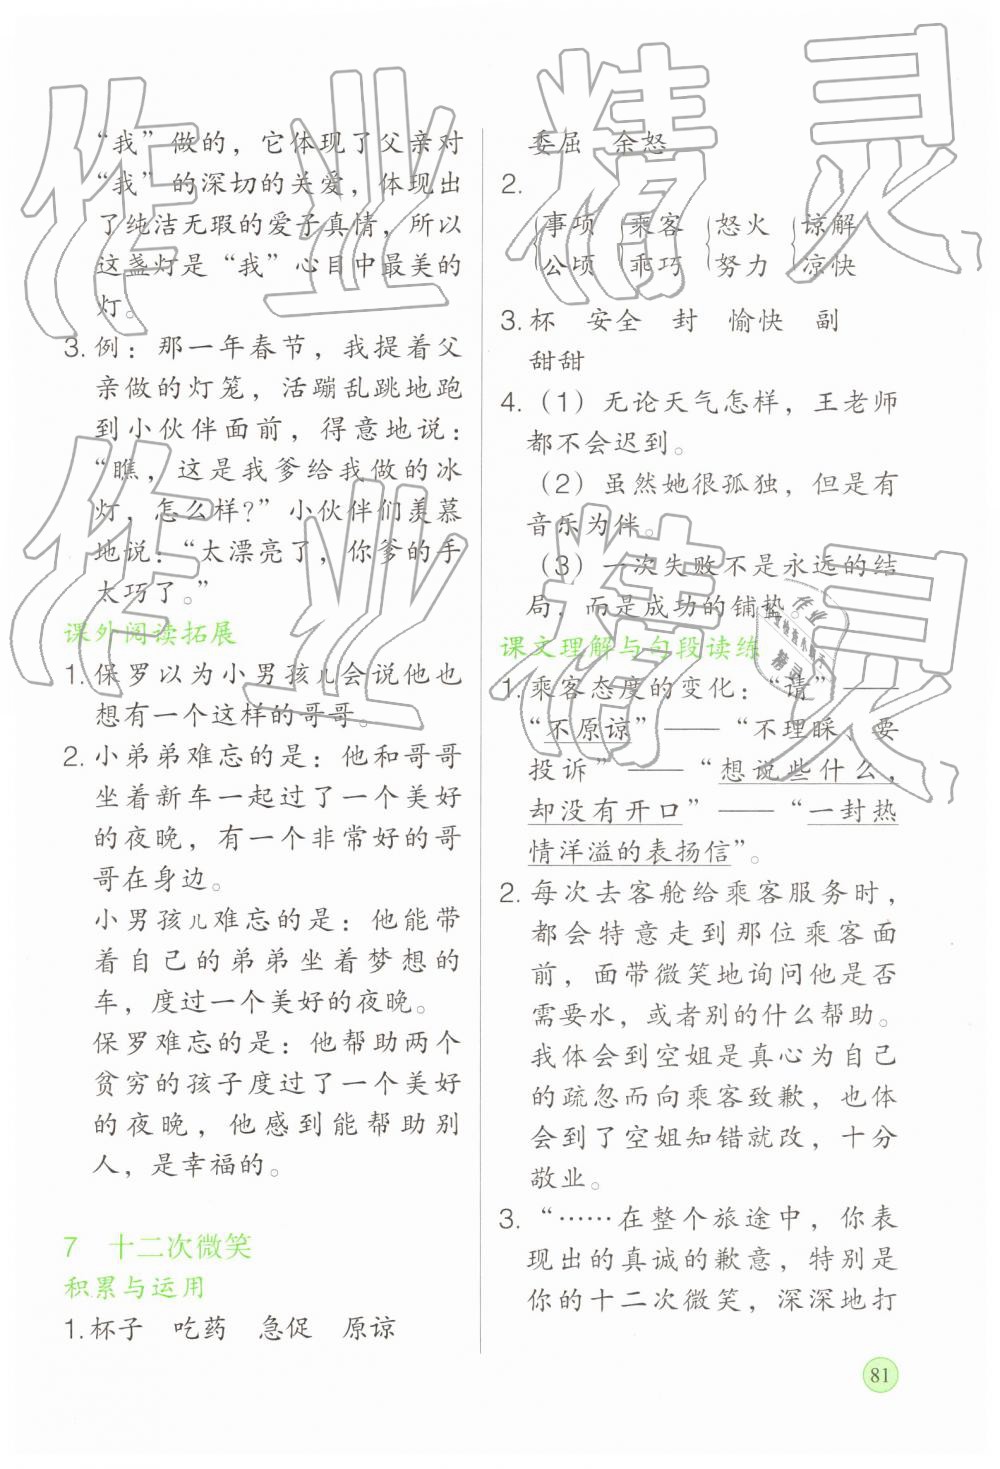 “我”做的，它体现了父亲对
“我”的深切的关爱，体现出
了纯洁无瑕的爱子真情，所以
这盏灯是“我”心目中最美的
灯。
3. 例：那一年春节，我提着父
亲做的灯笼，活蹦乱跳地跑
到小伙伴面前，得意地说：
“瞧，这是我爹给我做的冰
灯，怎么样？”小伙伴们羡慕
地说：“太漂亮了，你爹的手
太巧了。”
课外阅读拓展
1. 保罗以为小男孩儿会说他也
想有一个这样的哥哥。
2. 小弟弟难忘的是：他和哥哥
坐着新车一起过了一个美好
的夜晚，有一个非常好的哥
哥在身边。
小男孩儿难忘的是：他能带
着自己的弟弟坐着梦想的
车，度过一个美好的夜晚。
保罗难忘的是：他帮助两个
贫穷的孩子度过了一个美好
的夜晚，他感到能帮助别
人，是幸福的。
7 十二次微笑
积累与运用
1. 杯子 吃药 急促 原谅
委屈 余怒
2.
事项 乘客 怒火 谅解
公顷 乖巧 努力 凉快
3. 杯 安全 封 愉快 副
甜甜
4.（1）无论天气怎样，王老师
都不会迟到。
（2）虽然她很孤独，但是有
音乐为伴。
（3）一次失败不是永远的结
局，而是成功的铺垫。
课文理解与句段读练
1. 乘客态度的变化：“请”——
“不原谅”——“不理睬、要
投诉”——“想说些什么，
却没有开口”——“一封热
情洋溢的表扬信”。
2. 每次去客舱给乘客服务时，
都会特意走到那位乘客面
前，面带微笑地询问他是否
需要水，或者别的什么帮助。
我体会到空姐是真心为自己
的疏忽而向乘客致歉，也体
会到了空姐知错就改，十分
敬业。
3.“……在整个旅途中，你表
现出的真诚的歉意，特别是
你的十二次微笑，深深地打
81
作业精灵
作业精灵